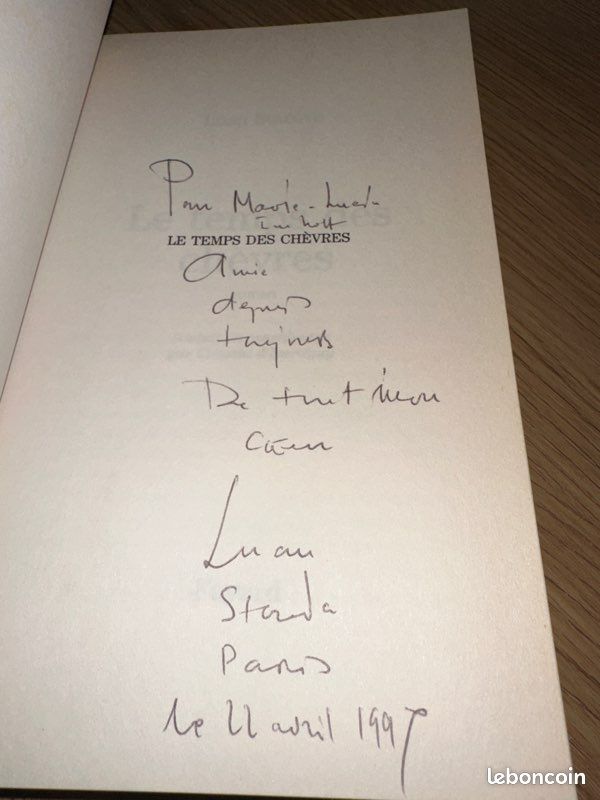 Pour Marie-Lucie
LE TEMPS DES CHÈVRES
Amie
depuis
toujours
De tout mon
cœur
Luan
Starova
Paris
le 22 avril 1997
leboncoin